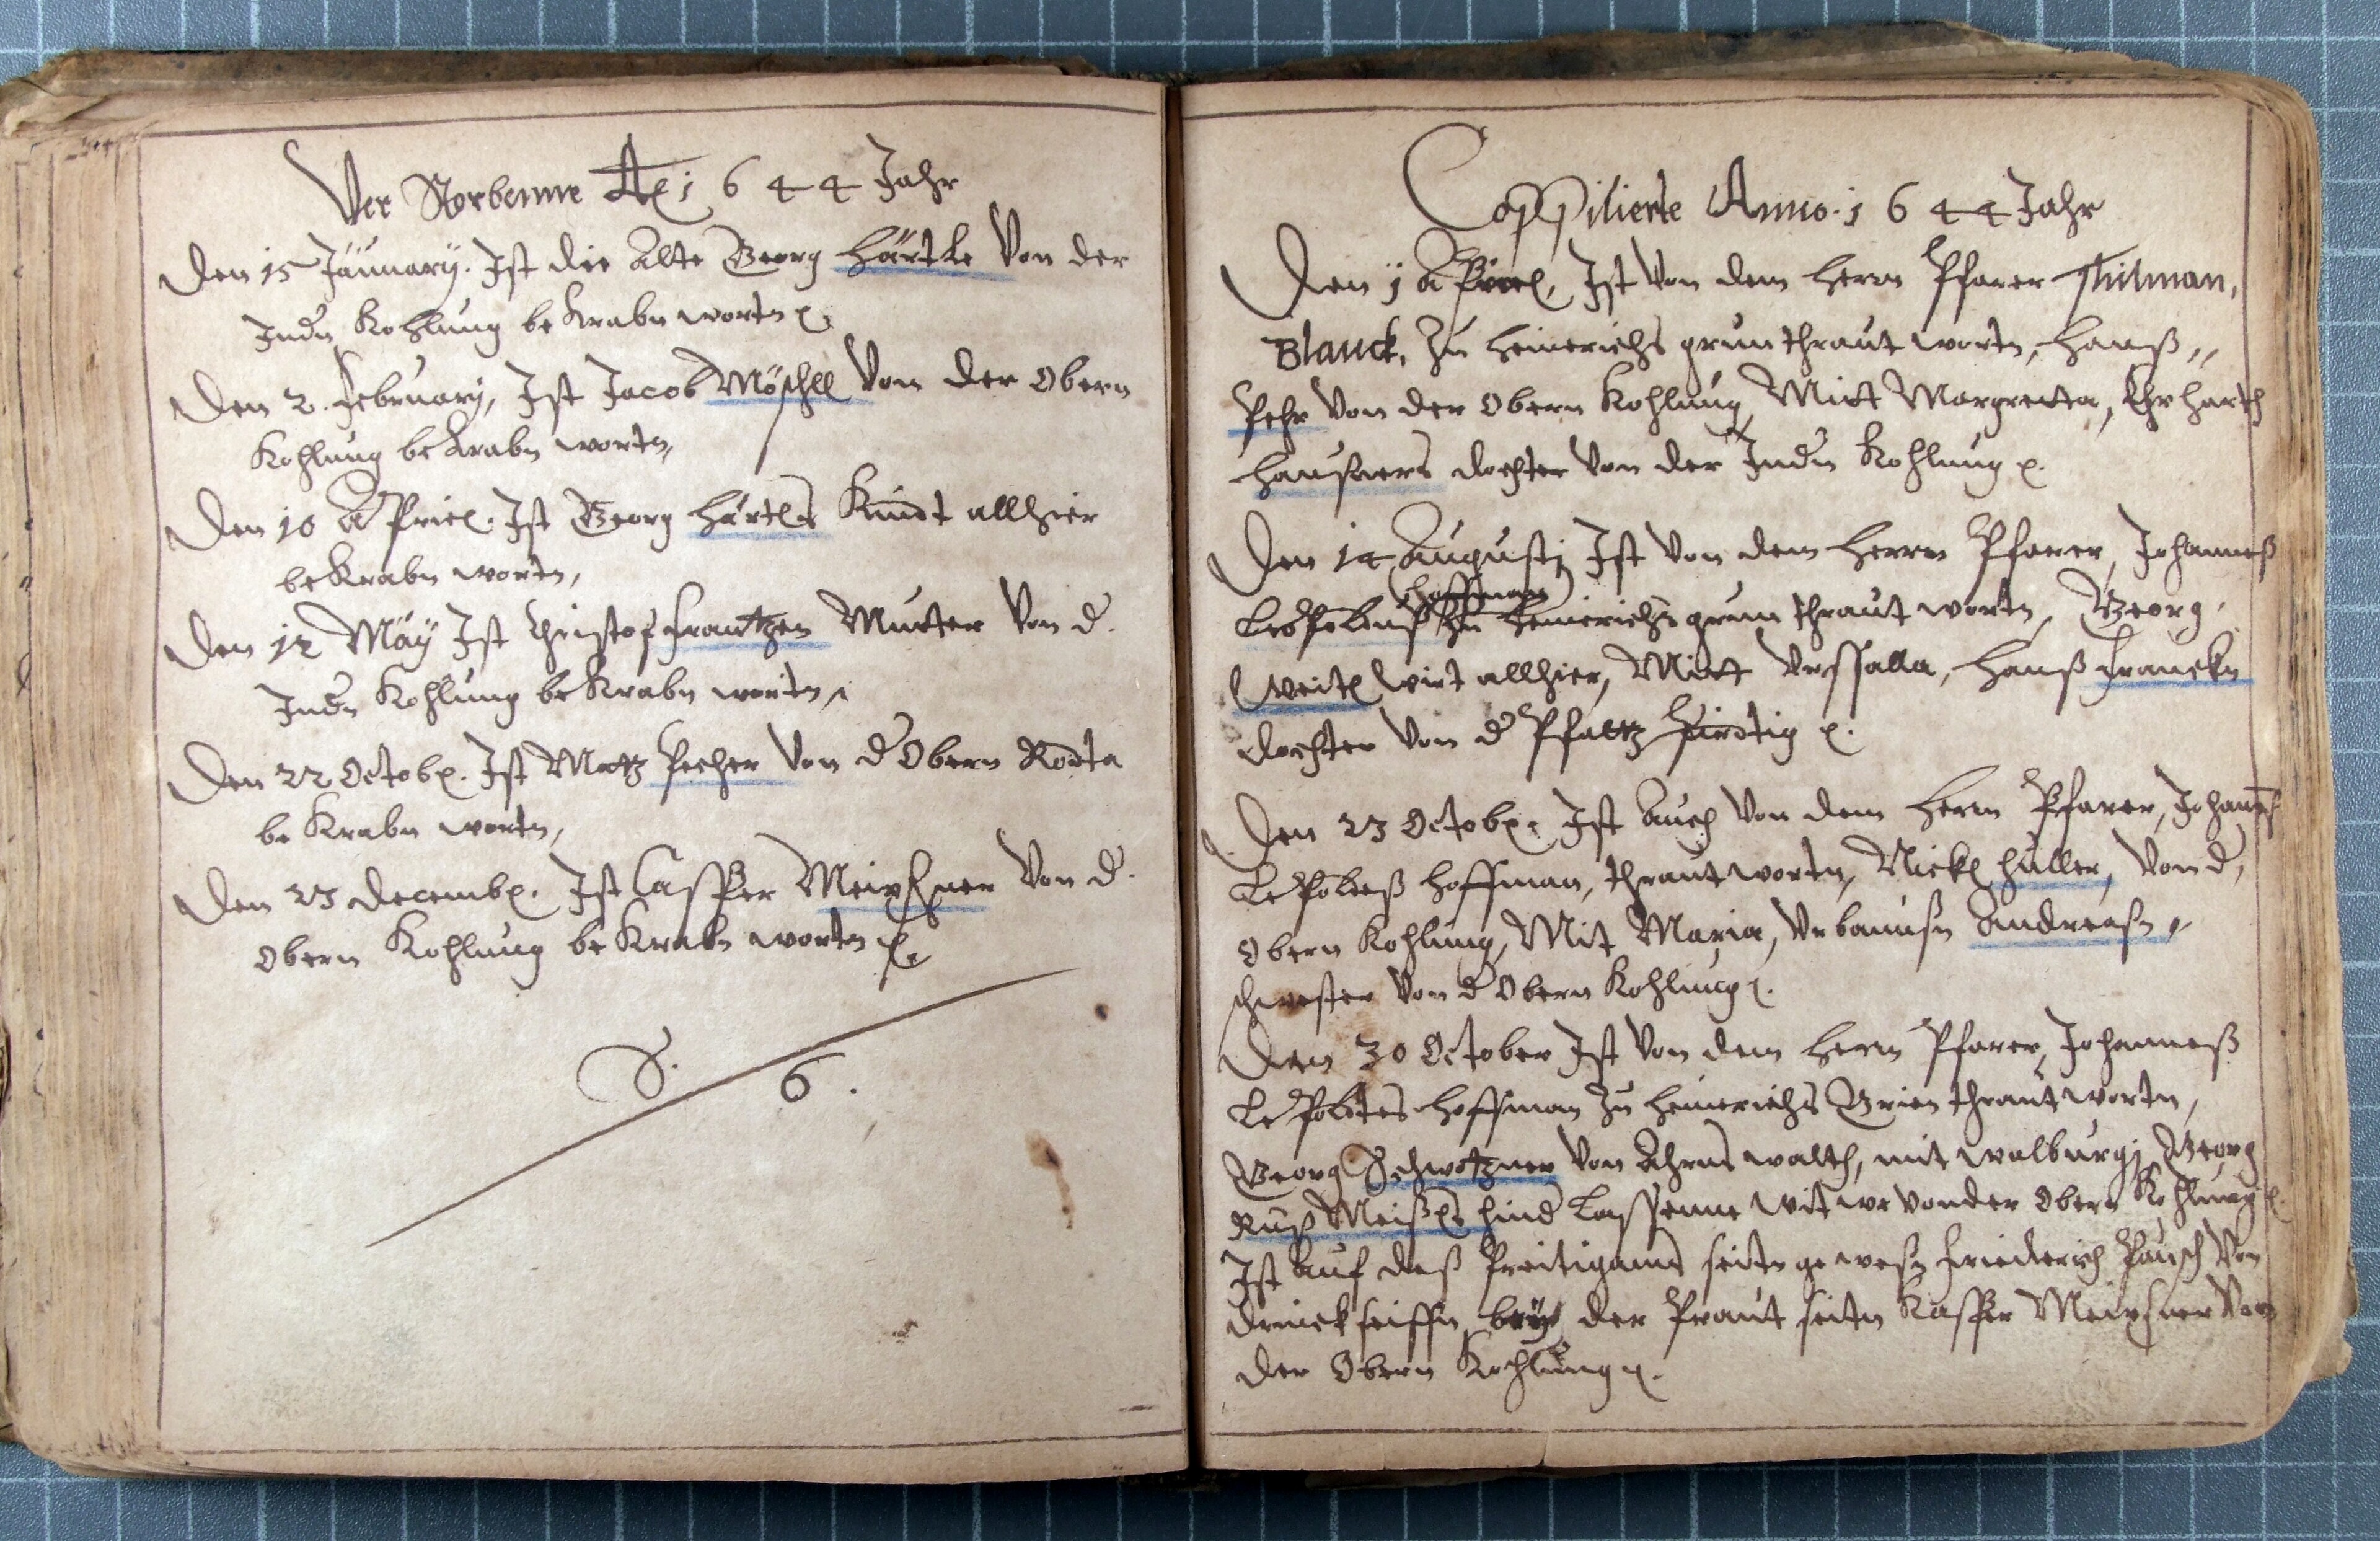 Ver Storbenne Ao 1644 Jahr
Den 15 Jännuarÿ. Ist die Alte Georg Härtle Von der
Indn Kohlung be Krabn worten
Den 2. February, Ist Jacob Möschll Von der Obern
Kohlung be Krabn worten,
Den 10 A Priel. Ist Georg Härtls Kindt allhier
be Krabn worten,
Den 12 Maÿ Ist Christof Frantzen Mutter Von d.
Indn Kohlung be Krabn worten,
Den 22 Octobr. Ist Matz Pecher Von d Obern Rodta
be Krabn worten,
Den 23 Decembr. Ist Casper Meixsner Von d.
Obern Kohlung be Krabn worten
S. 6.
Coppilierte Anno 1644 Jahr
Den 1 A Priel, Ist Von dem Herrn Pfarer Thilman,
Blanck, Zu Heinerichs grun thraut worten, Hanß,,
Pehr Von der Obern Kohlung, Mitt Margretta, Ehrharth
Haußners dochter Von der Indn Kohlung
Den 14 Augusti Ist Von dem Herrn Pfarer, Johanneß
Hoffman
Leopoltuß Zu Heinerichs grun thraut worten, Georg,
Weitl Wirt allhier, Mitt Urssalla, Hanß Franckn
dochter Von d Pfaltz
Den 23 Octobr. Ist Auch Von dem Herrn Pfarer, Johanneß
LePolteß Hoffman, thraut worten, Nickl Huller, Von d,
Obern Kohlung, Mit Maria, Urbanußn Andreasn,,
schwester Von d Obern Kohlung
Den 30 October Ist Von dem Herrn Pfarer, Johanneß
LePoltes Hoffman Zu Heinerichs Grien thraut worten,
Georg Schwotzner Von Ahrns walth, mit walburgi Georg
Ruß Meißls hind Lassenne witwe von der Obern Kohlung
Ist auf deß Preitigams seitn ge wesn Friederich Pausch Von
drinckseiffn, der Praut seitn Kasper Meixsner Von
der Obern Kohlung